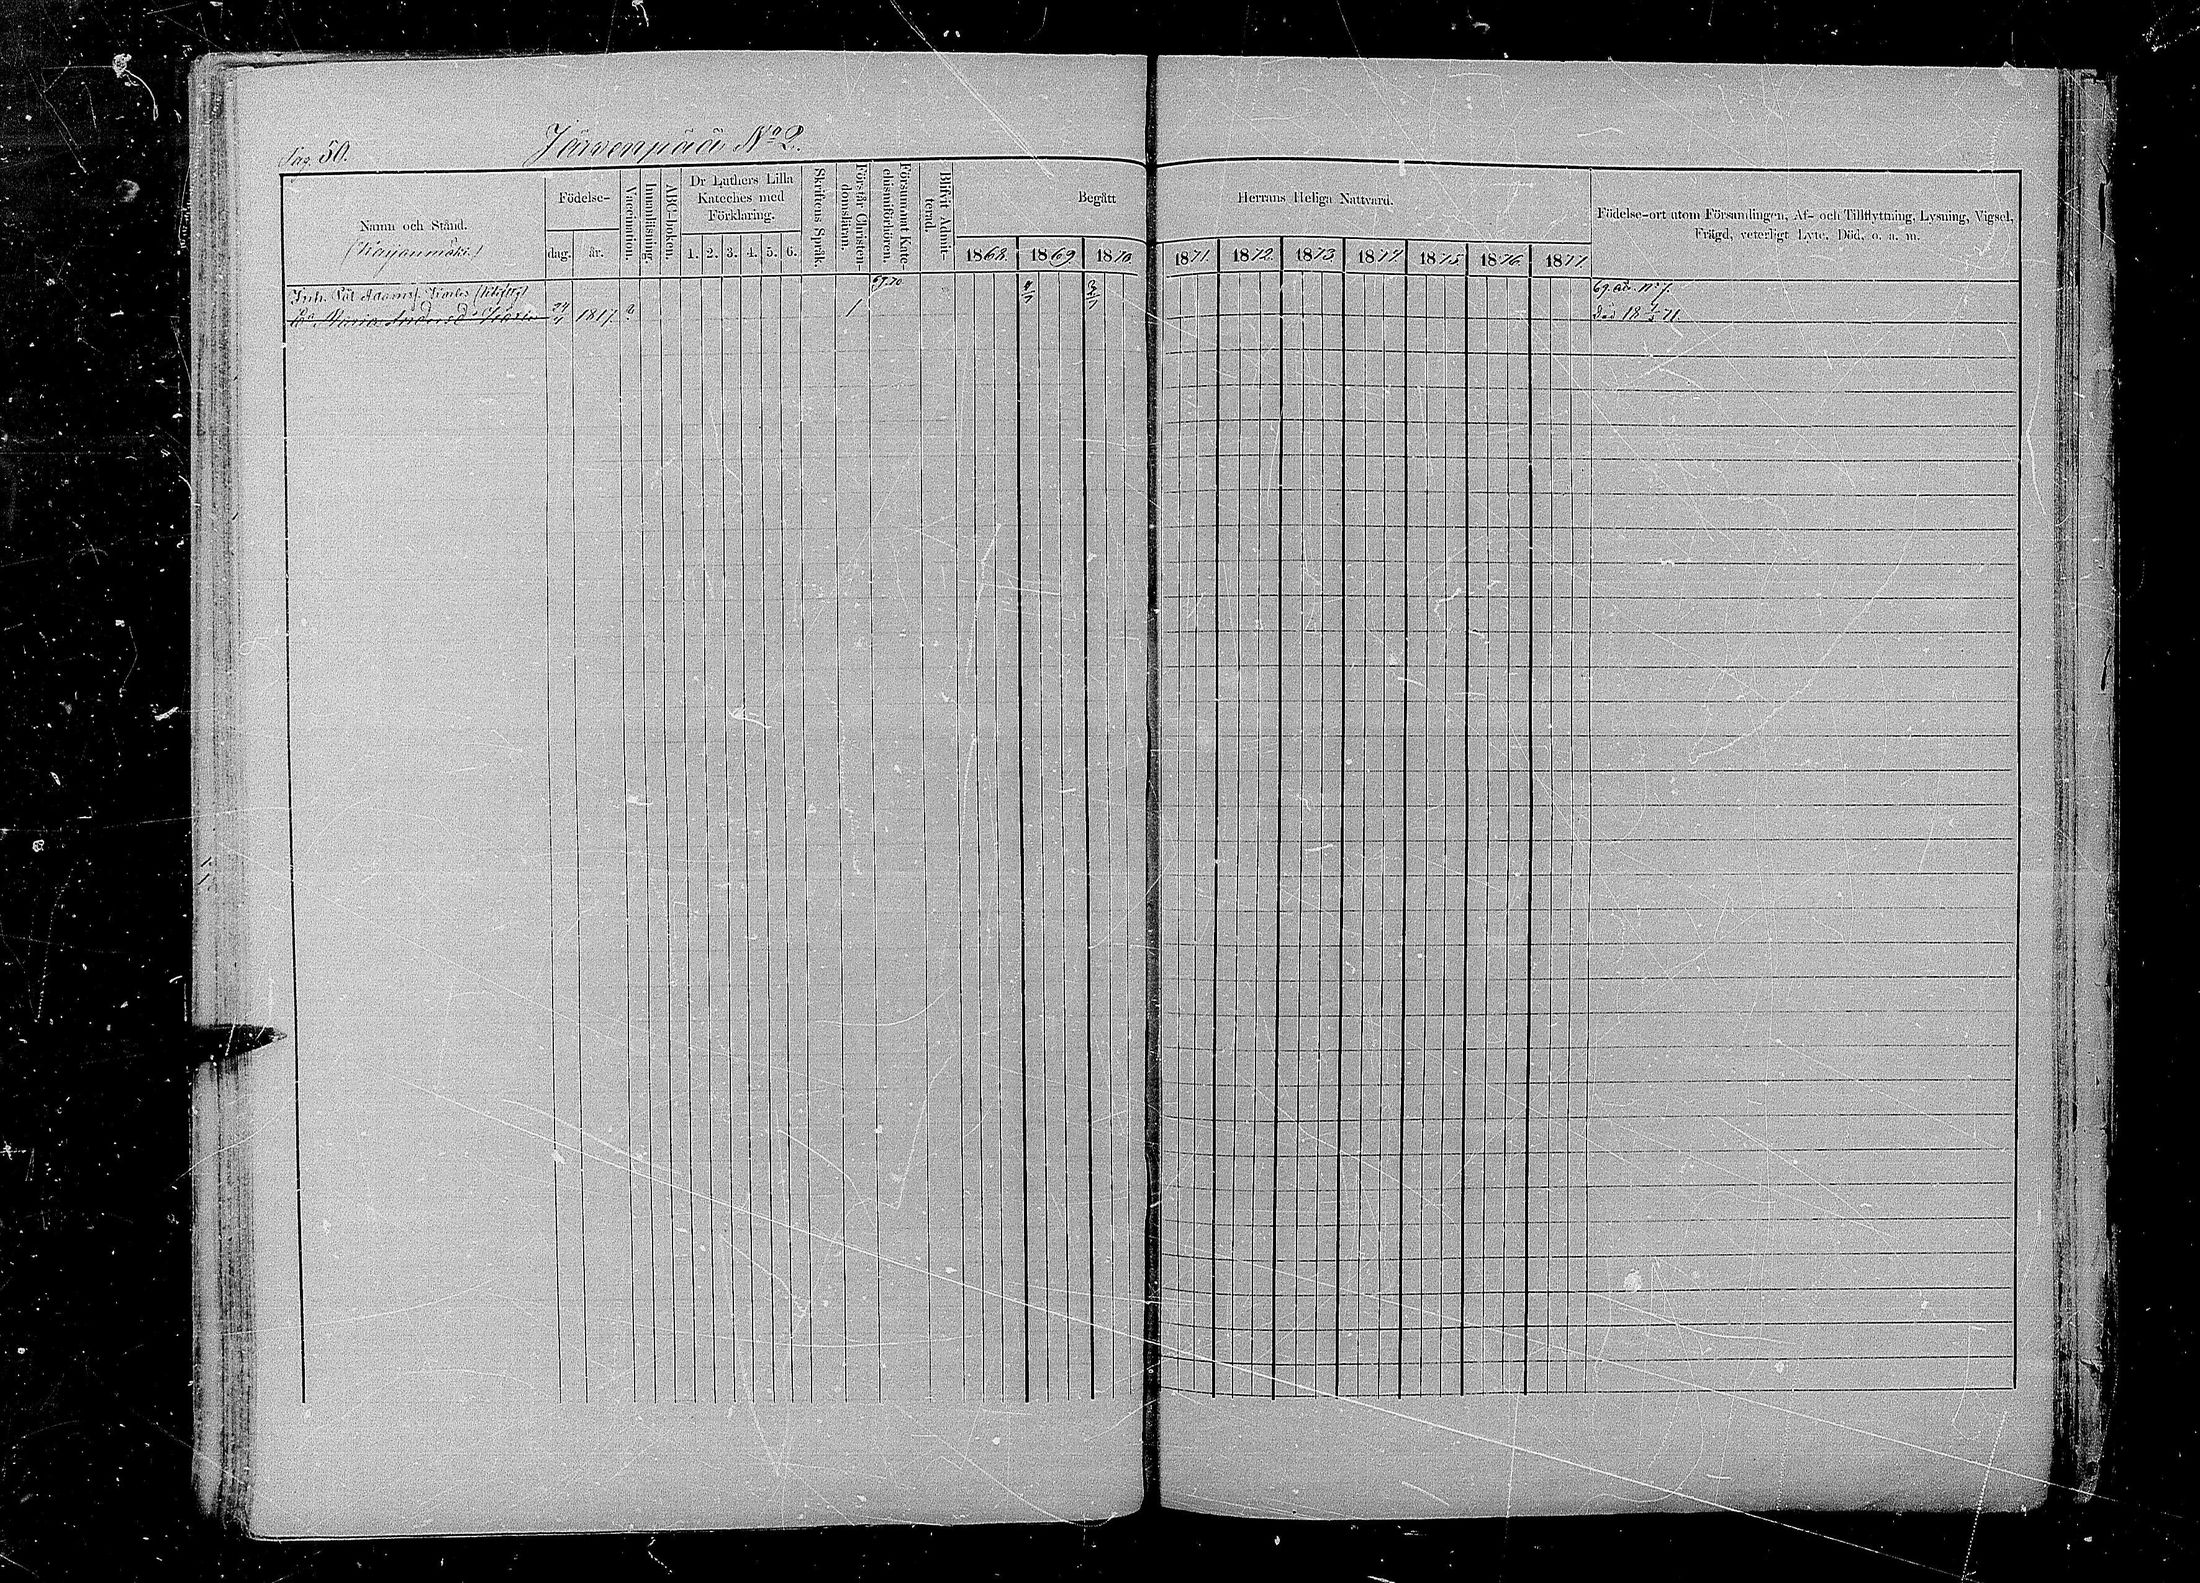 Pag. 50.
Järvenpää No 2.
Namn och Stånd.
Födelse-
dag.
år.
Vaccination.
Innanläsning.
ABC-boken.
Dr Luthers Lilla
Kateches med
Förklaring.
1. 2. 3. 4. 5. 6.
Skriftens Språk.
Förstår Christen-
domsläran.
Försummat Kate-
chismiförhören.
Blifvit Admit-
terad.
Begått
Herrans Heliga Nattvard.
1868. 1869 1870 1871. 1872. 1873. 1874. 1875. 1876. 1877.
Födelse-ort utom Församlingen, Af- och Tillflyttning, Lysning, Vigsel,
Frägd, veterligt Lyte, Död, o. a. m.
Inh. Adamsf.
69.70
Maria Andersd. 24/4 1817. 1
Död 71